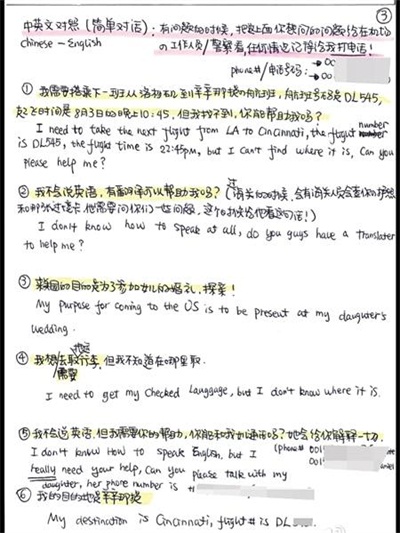 ③
中英文对照（简单对话）：有问题的时候，把上面你想问的问题给在机场
Chinese - English 的工作人员/警察看，任何情况记得给我打电话！
phone#/电话号码：→ 00
→ 00
① 我需要搭乘下一班从洛杉矶到辛辛那提的航班，航班号码是 DL545，
起飞时间是8月3日的晚上10:45，但我找不到，你能帮助我吗？
I need to take the next flight from LA to Cincinnati, the flight number
is DL545, the flight time is 22:45pm, but I can't find where it is, Can you
please help me?
② 我不会说英语，有翻译可以帮助我吗？（过海关的时候，会有海关人员会查你们护照
和那张过境卡，他需要问你们一些问题，这个时候给他看这句话！）
I don't know how to speak at all, do you guys have a translater
to help me?
③ 来美国的目的是为了参加女儿的婚礼，探亲！
My purpose for coming to the US is to be present at my daughter's
wedding.
④ 我想去取行李，但我不知道在哪里取.
需要
I need to get my checked Langgage, but I don't know where it is.
⑤ 我不会说英语，但我需要你的帮助，你能和我女儿通话吗？她会给你解释一切.
I don't know how to speak English, but I (phone# 001
really need your help, Can you please talk with my 001
daughter, her phone number is
⑥ 我的目的地是辛辛那提
My destination is Cincinnati, flight# is DL